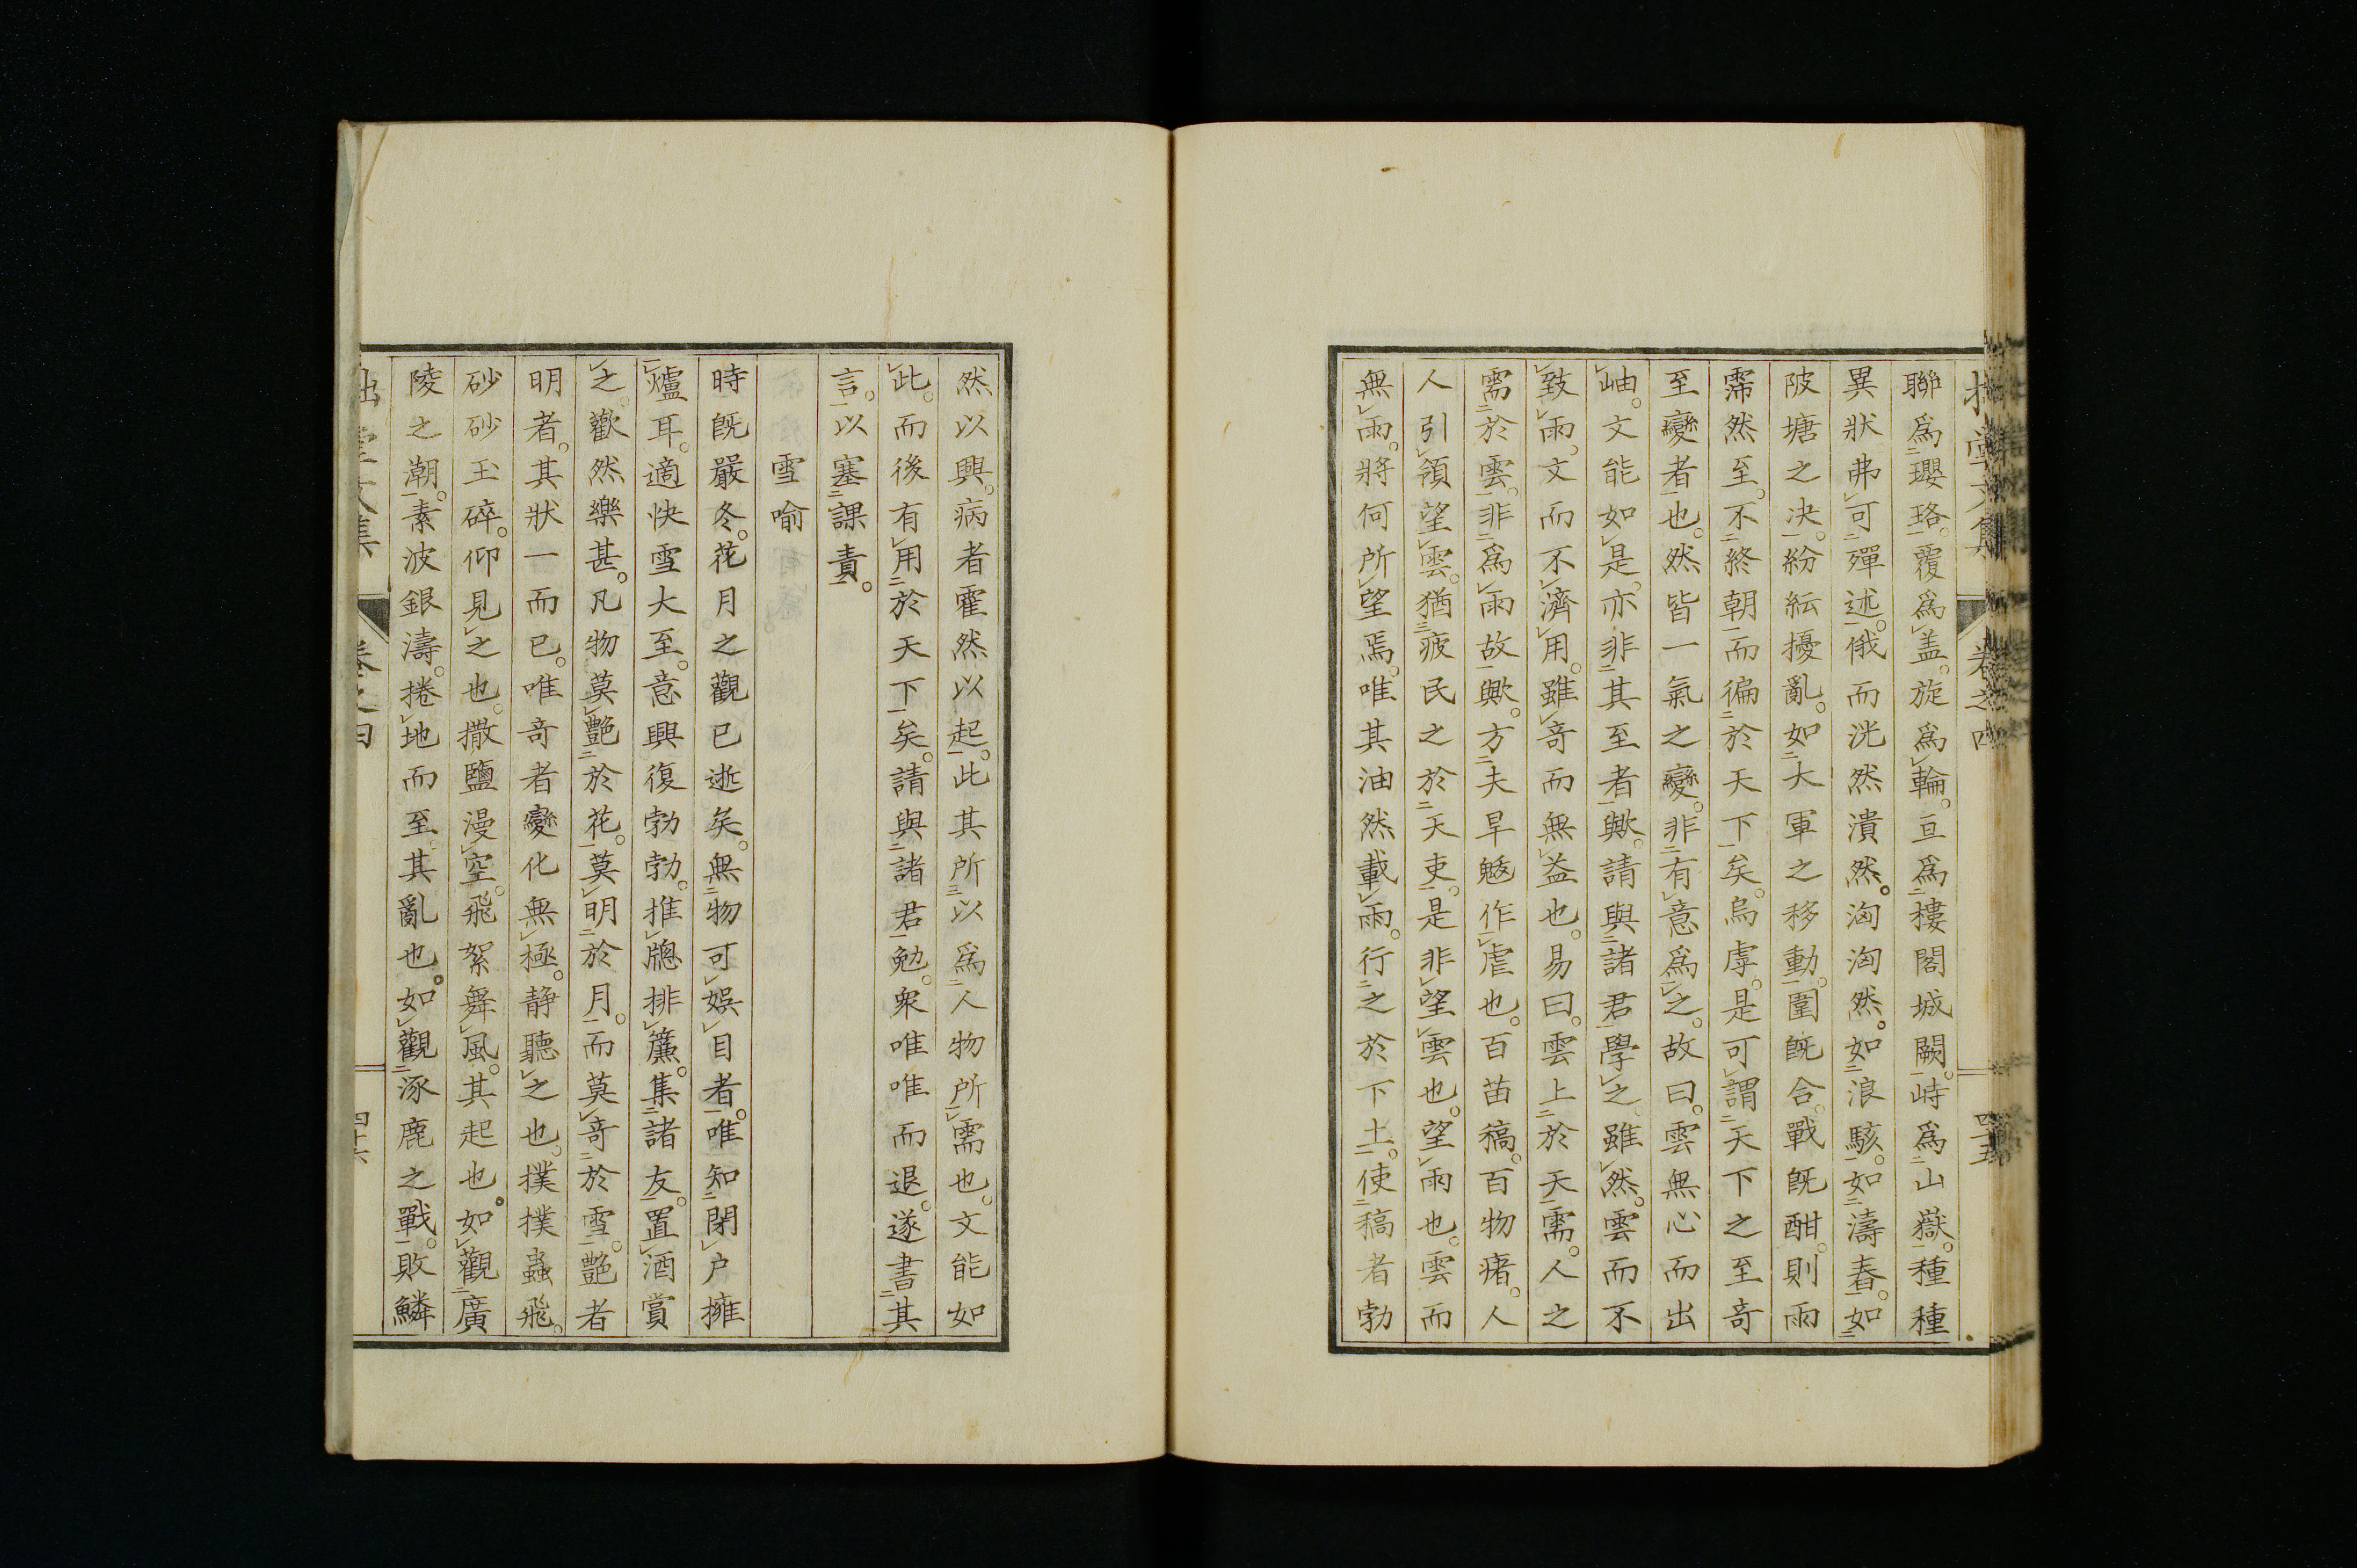 聯爲瓔珞。覆爲盖。旋爲輪。亘爲樓閣城闕。峙爲山嶽。種種
異狀弗可殫述。俄而洸然潰然。洶洶然。如浪駭。如濤舂。如
陂塘之决。紛紜擾亂。如大軍之移動。圍既合。戰既酣。則雨
霈然至。不終朝而徧於天下矣。烏虖。是可謂天下之至奇
至變者也。然皆一氣之變。非有意爲之。故曰。雲無心而出
岫。文能如是。亦非其至者歟。請與諸君學之。雖然。雲而不
致雨。文而不濟用。雖奇而無益也。易曰。雲上於天需。人之
需於雲。非爲雨故歟。方夫旱魃作虐也。百苗稿。百物瘏。人
人引領望雲。猶疲民之於天吏。是非望雲也。望雨也。雲而
無雨。將何所望焉。唯其油然載雨。行之於下土。使稿者勃
卷之四
四十五
然以興。病者霍然以起。此其所以爲人物所需也。文能如
此。而後有用於天下矣。請與諸君勉。衆唯唯而退。遂書其
言。以塞課責。
雪喻
時既嚴冬。花月之觀已逝矣。無物可娯目者。唯知閉户擁
爐耳。適快雪大至。意興復勃勃。推牕排簾。集諸友。置酒賞
之。歡然樂甚。凡物莫艶於花。莫明於月。而莫奇於雪。艶者
明者。其狀一而已。唯奇者變化無極。静聽之也。撲撲蟲飛。
砂砂玉碎。仰見之也。撒鹽漫空。飛絮舞風。其起也。如觀廣
陵之潮。素波銀濤。捲地而至。其亂也。如觀涿鹿之戰。敗鱗
四十六